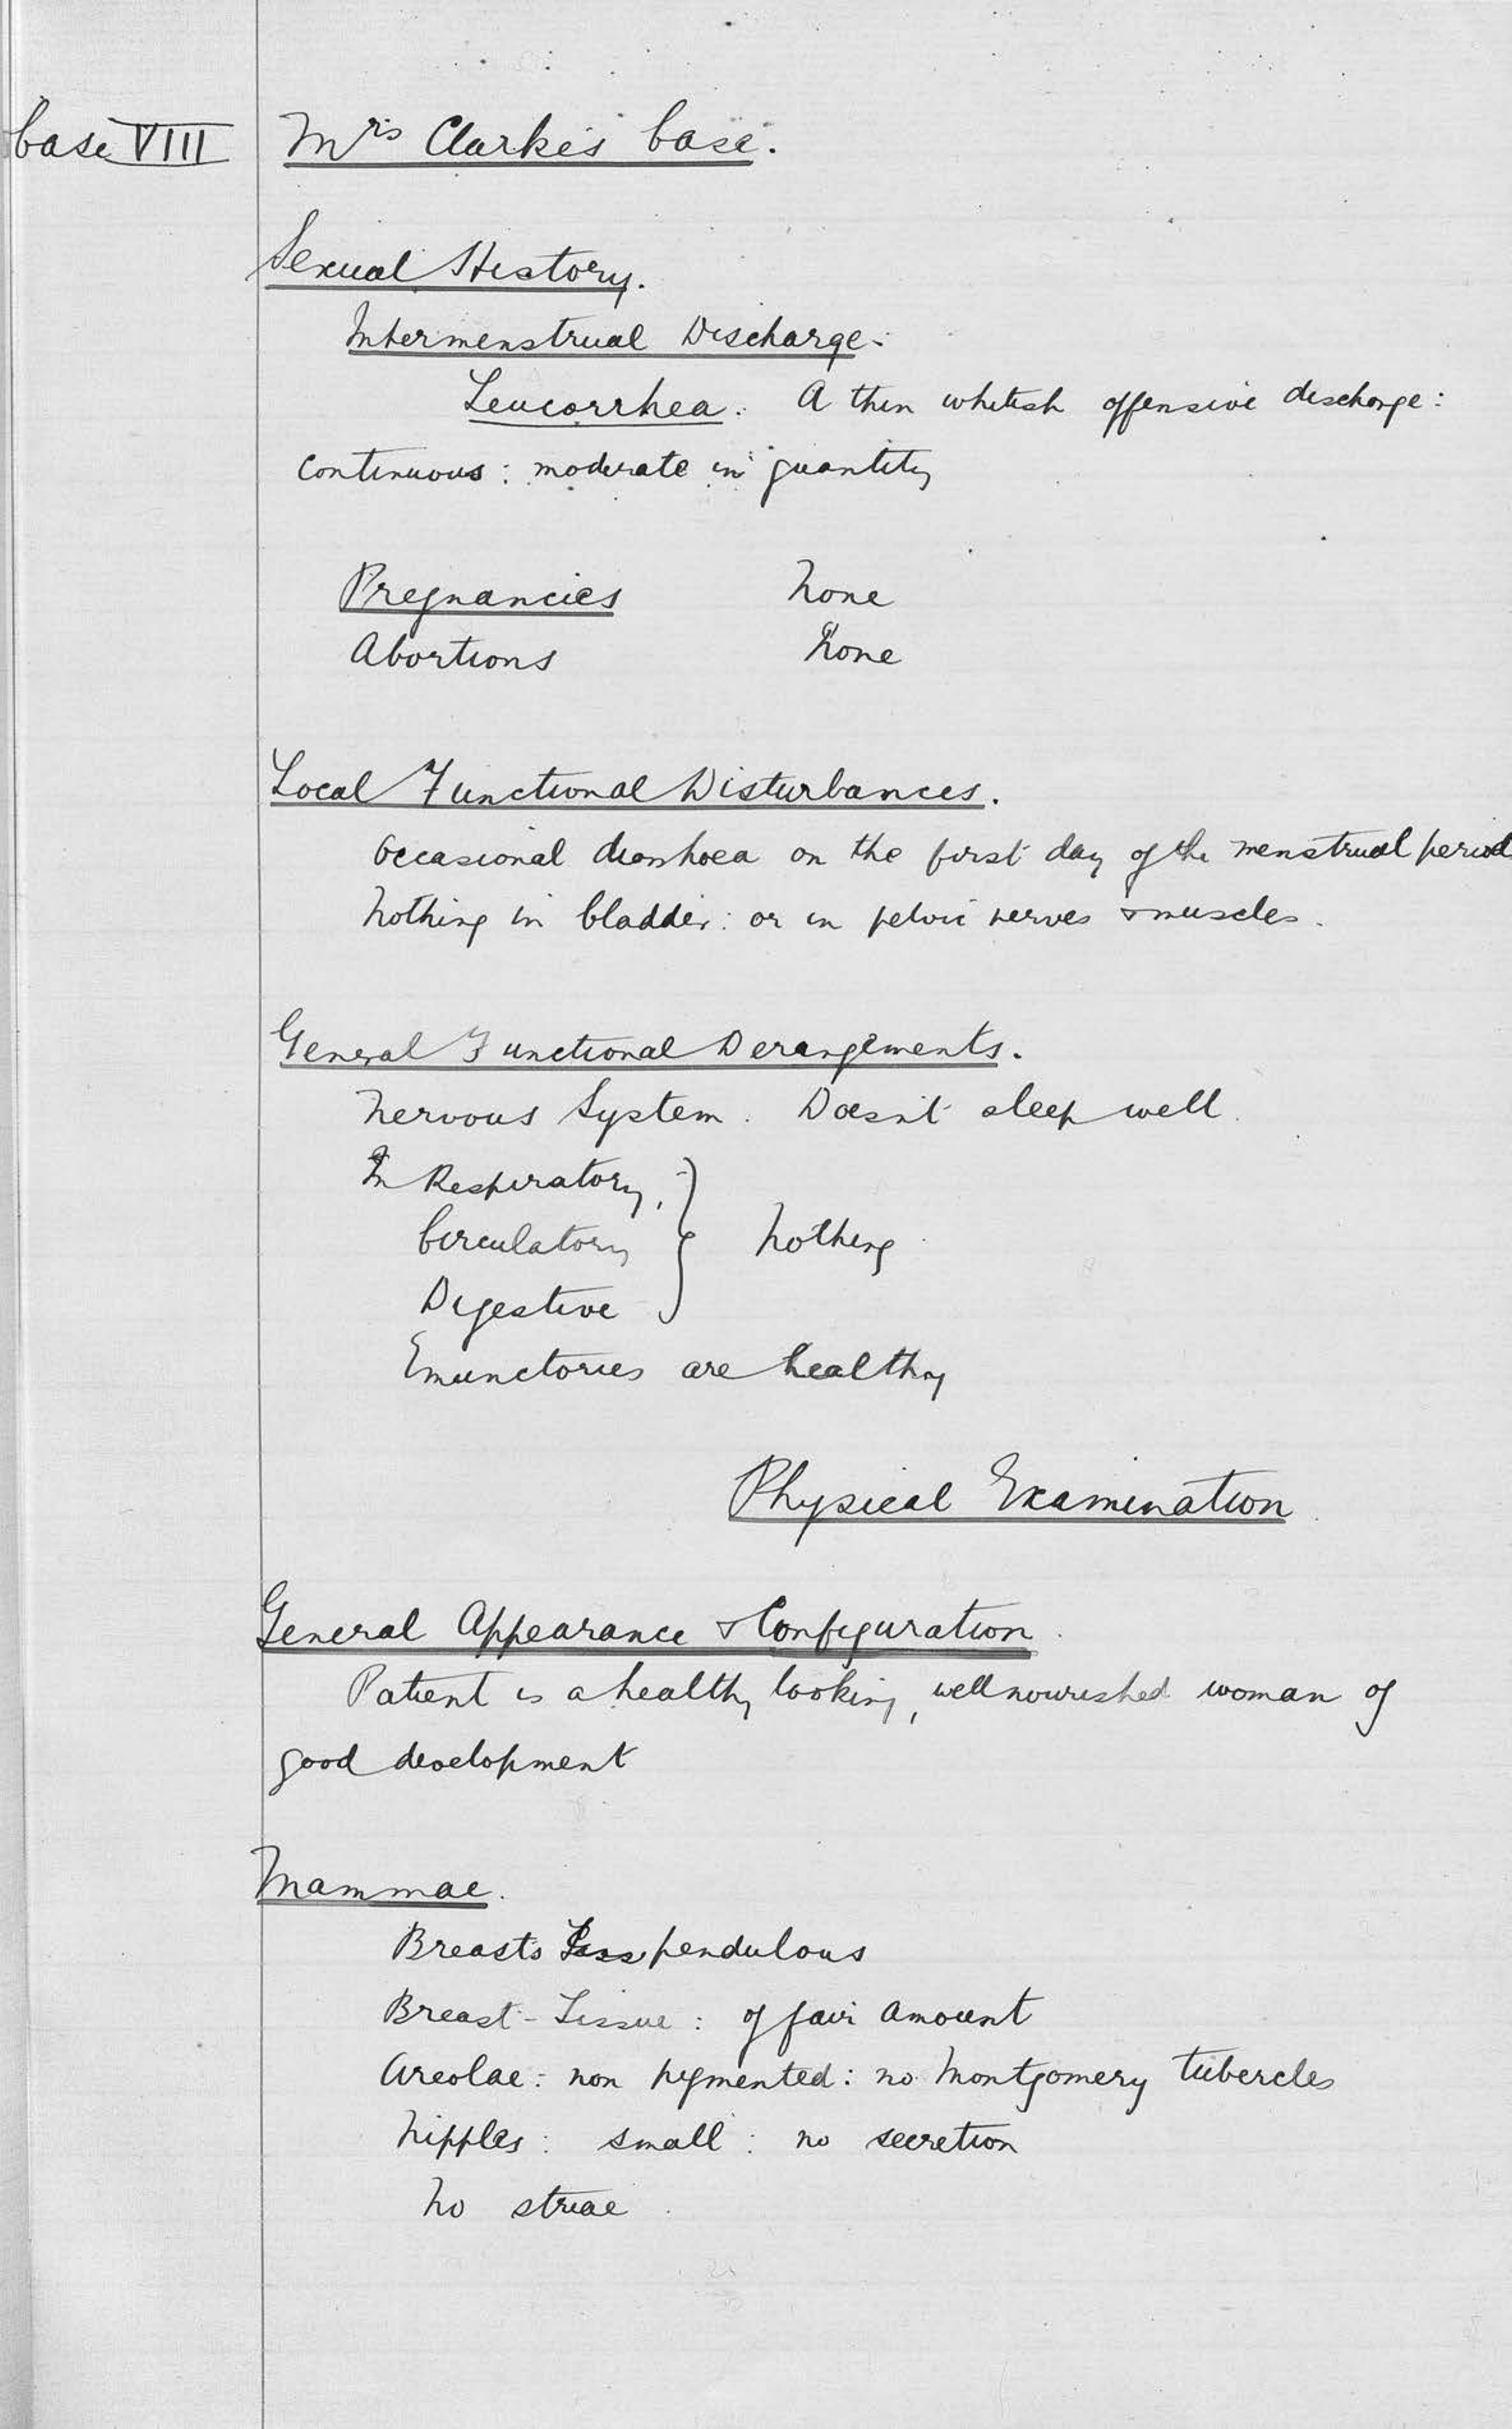 Case VIII
Mrs Clarke's Case.
Sexual History.
Intermenstrual Discharge:
Leucorrhea: A thin whitish offensive discharge:
continuous: moderate in quantity
Pregnancies None
Abortions None
Local Functional Disturbances.
Occasional diarrhoea on the first day of the menstrual period
Nothing in bladder: or in pelvic nerves & muscles.
General Functional Derangements.
Nervous System. Doesn't sleep well.
In Respiratory,
Circulatory } Nothing
Digestive
Emunctories are healthy
Physical Examination
General Appearance & Configuration.
Patient is a healthy looking, well nourished woman of
good development
Mammae.
Breasts pendulous
Breast-Tissue: of fair amount
Areolae: non pigmented: no Montgomery tubercles
Nipples: small: no secretion
No striae.